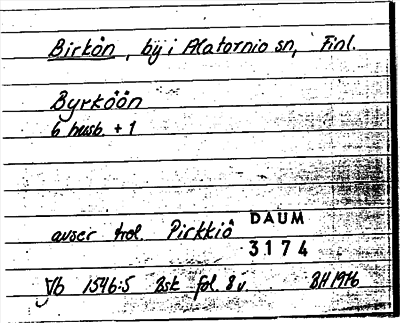 Birkön, by i Alatornio sn, Finl.
Byrköön
6 husb. + 1
avser trol. Pirkkiö
DAUM
3174
Vb 1546:5 Bsk fol. 8v. BH 1976